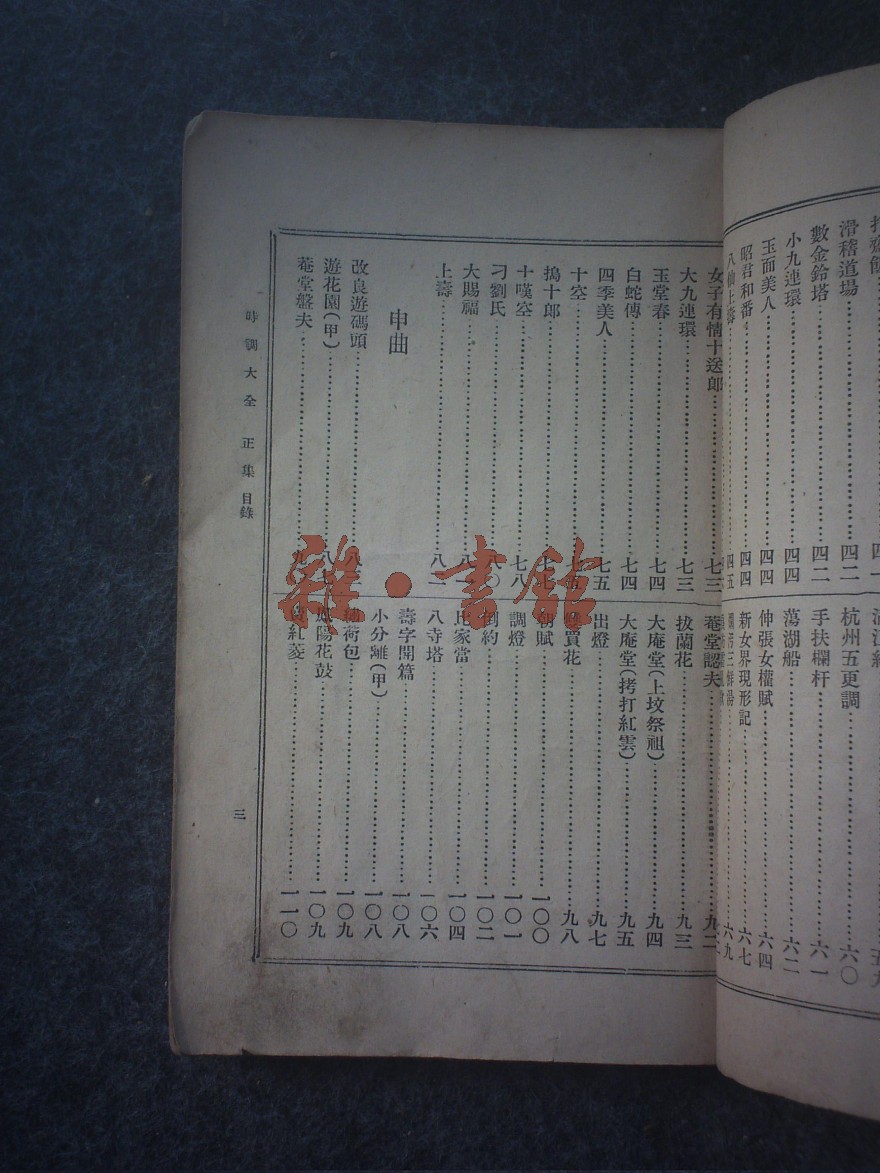 滑稽道場 四二
數金鈴塔 四二
小九連環 四四
玉面美人 四四
昭君和番 四四
八仙上壽 四五
杭州五更調 六〇
手扶欄杆 六一
蕩湖船 六二
伸張女權賦 六四
新女界現形記 六七
六九
女子有情十送郎 七三
大九連環 七三
玉堂春 七四
白蛇傳 七四
四季美人 七五
十空
搗十郎
十嘆空 七八
刁劉氏 八〇
大賜福 八
上壽 八二
申曲
改良遊碼頭 八
遊花園(甲) 八
菴堂盤夫 九
菴堂認夫 九二
拔蘭花 九三
大庵堂(上坟祭祖) 九四
大庵堂(拷打紅雲) 九五
出燈 九七
賣花 九八
賦 一〇〇
調燈 一〇一
約 一〇二
家當 一〇四
八寺塔 一〇六
壽字開篇 一〇八
小分離(甲) 一〇八
荷包 一〇九
陽花鼓 一〇九
紅菱 一一〇
時調大全 正集 目錄
三
雜·書館